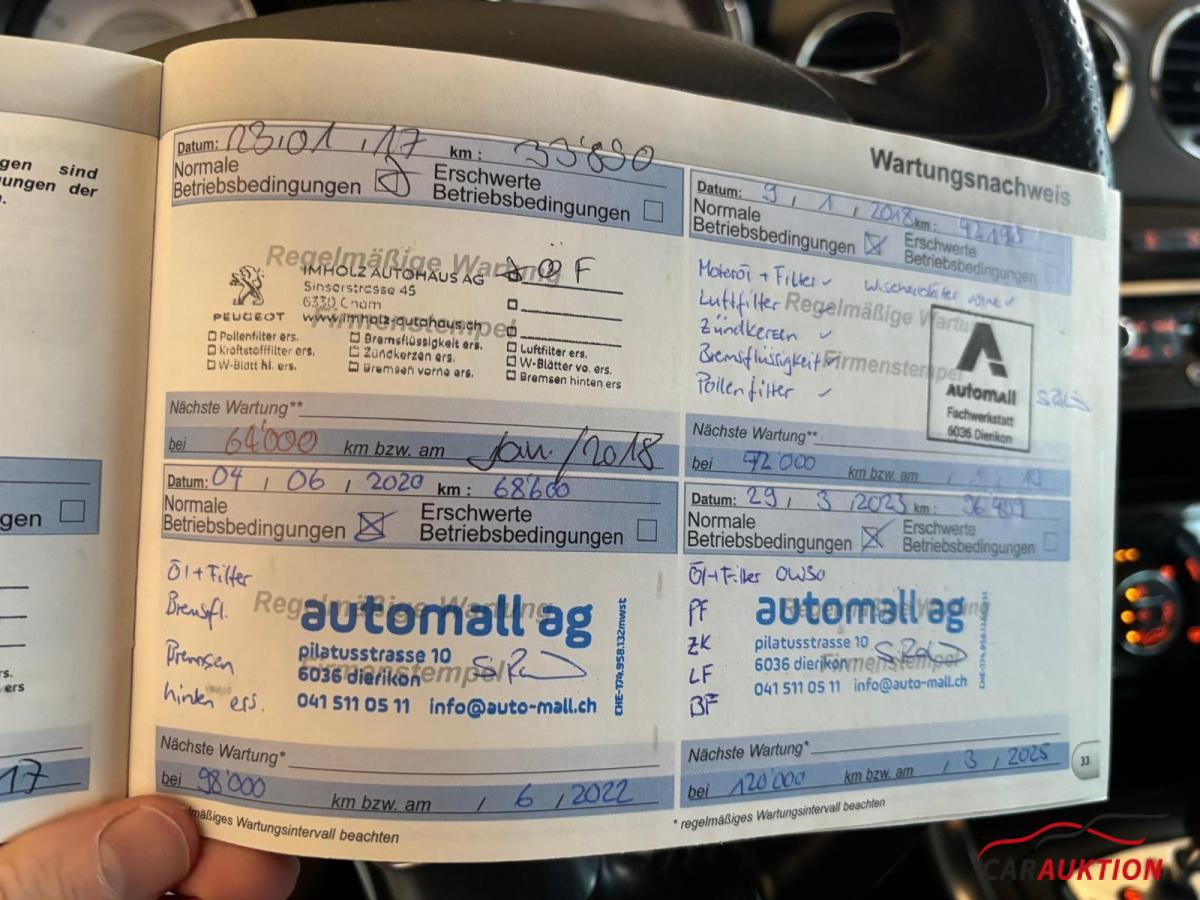 gen sind
ungen der
gen
rs.
s.
ers
17
Wartungsnachweis
Datum: 23.01.17 km: 33'890
Normale Betriebsbedingungen
Erschwerte Betriebsbedingungen
Regelmäßige Wartung
Firmenstempel
PEUGEOT
IMHOLZ AUTOHAUS AG
Sinserstrasse 45
6330 Cham
www.imholz-autohaus.ch
F
Pollenfilter ers.
Kraftstofffilter ers.
W-Blatt hi. ers.
Bremsflüssigkeit ers.
Zündkerzen ers.
Bremsen vorne ers.
Luftfilter ers.
W-Blätter vo. ers.
Bremsen hinten ers
Nächste Wartung**
bei 64'000 km bzw. am Jan./2018
Datum: 9, 1, 2018 km:
Normale Betriebsbedingungen
Erschwerte Betriebsbedingungen
Motoröl + Filter ✓
Luftfilter
Zündkerzen ✓
Bremsflüssigkeit ✓
Pollenfilter ✓
vorne ✓
Regelmäßige Wartu
Firmenstempel
Automall
Fachwerkstatt
6036 Dierikon
Nächste Wartung**
bei 72000 km bzw. am , 1, 19
Datum: 04, 06, 2020 km: 68'600
Normale Betriebsbedingungen
Erschwerte Betriebsbedingungen
Öl + Filter
Bremsfl.
Bremsen
hinten ers.
Regelmäßige Wartung
Firmenstempel
automall ag
pilatusstrasse 10
6036 dierikon
041 511 05 11 info@auto-mall.ch
CHE-174.958.132mwst
Nächste Wartung*
bei 98'000 km bzw. am / 6, 2022
mäßiges Wartungsintervall beachten
Datum: 29, 3, 2023 km:
Normale Betriebsbedingungen
Erschwerte Betriebsbedingungen
Öl + Filter 0W30
PF
ZK
LF
BF
Wartung
Firmenstempel
automall ag
pilatusstrasse 10
6036 dierikon
041 511 05 11 info@auto-mall.ch
Nächste Wartung*
bei 120'000 km bzw. am , 3, 2025
* regelmäßiges Wartungsintervall beachten
33
CARAUKTION